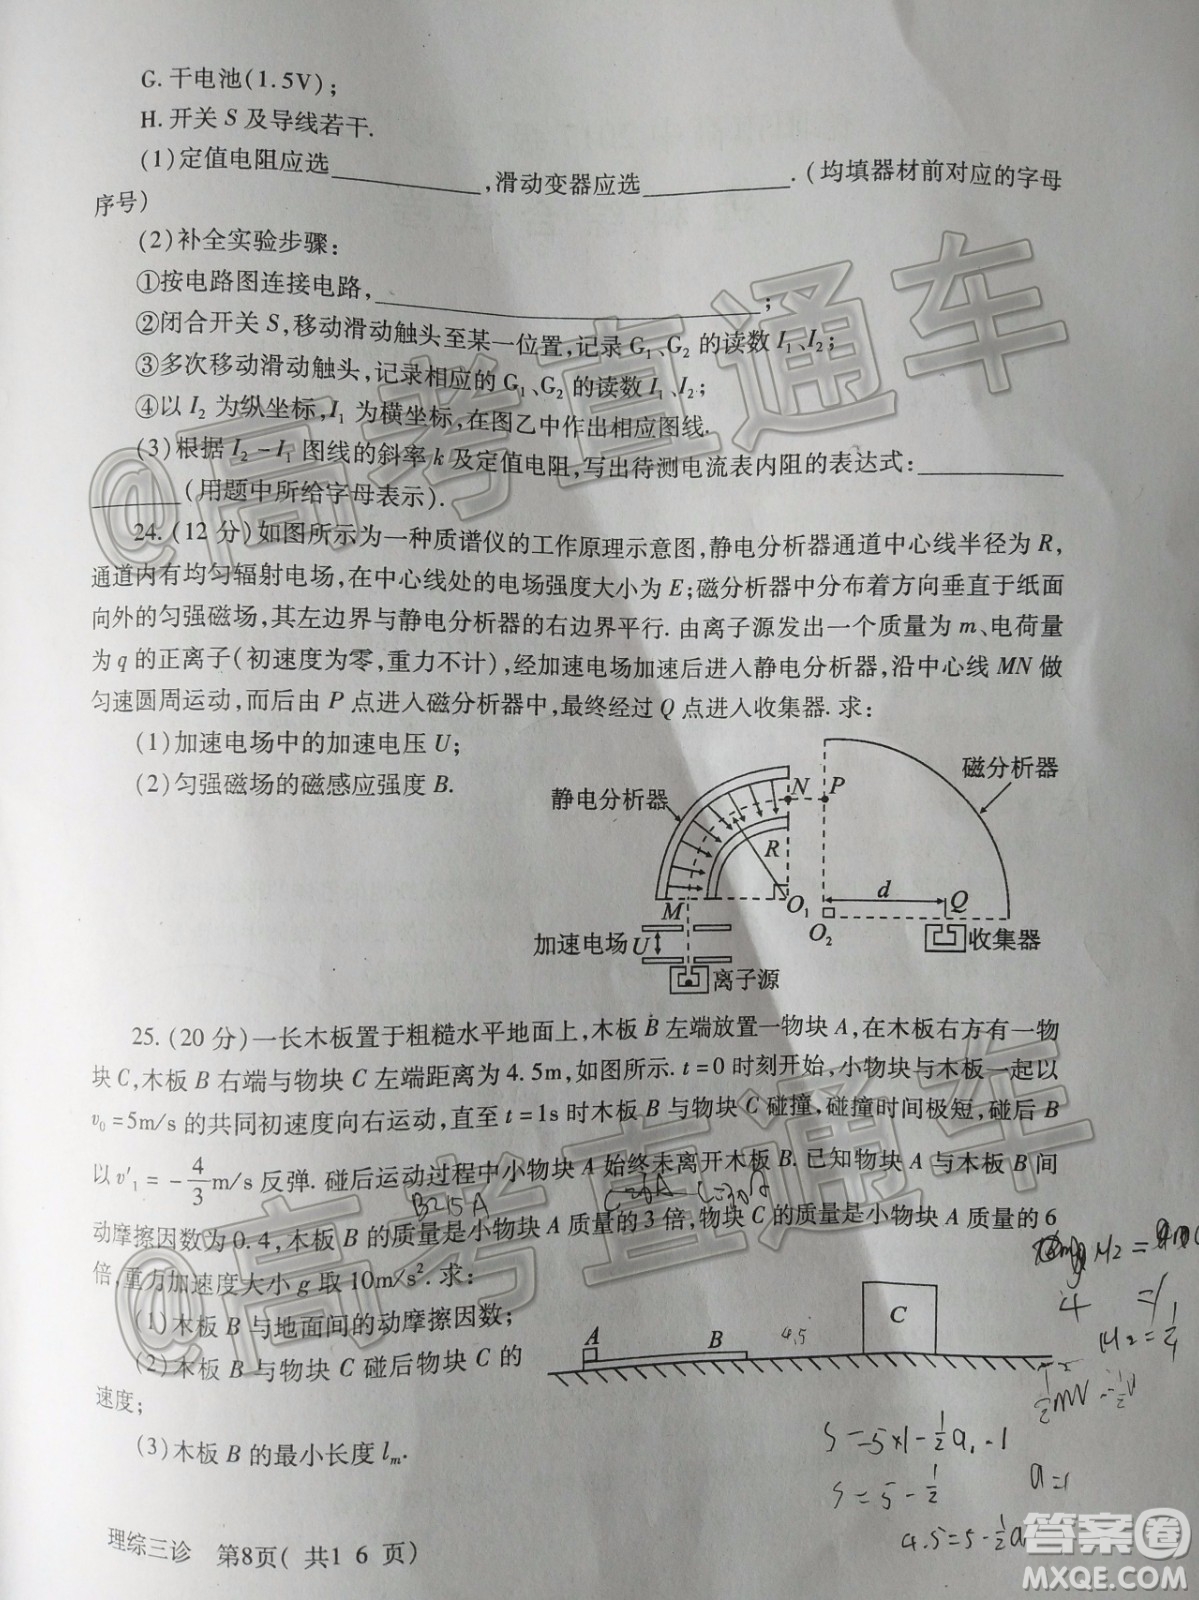 G. 干电池(1.5V)；
H. 开关 S 及导线若干.
(1)定值电阻应选__________,滑动变器应选__________.(均填器材前对应的字母
序号)
(2)补全实验步骤：
①按电路图连接电路,____________________；
②闭合开关 S,移动滑动触头至某一位置,记录 G₁、G₂ 的读数 I₁、I₂；
③多次移动滑动触头,记录相应的 G₁、G₂ 的读数 I₁、I₂；
④以 I₂ 为纵坐标,I₁ 为横坐标,在图乙中作出相应图线.
(3)根据 I₂－I₁ 图线的斜率 k 及定值电阻,写出待测电流表内阻的表达式：__________
______(用题中所给字母表示).
24. (12 分)如图所示为一种质谱仪的工作原理示意图,静电分析器通道中心线半径为 R,
通道内有均匀辐射电场,在中心线处的电场强度大小为 E；磁分析器中分布着方向垂直于纸面
向外的匀强磁场,其左边界与静电分析器的右边界平行. 由离子源发出一个质量为 m、电荷量
为 q 的正离子(初速度为零,重力不计),经加速电场加速后进入静电分析器,沿中心线 MN 做
匀速圆周运动,而后由 P 点进入磁分析器中,最终经过 Q 点进入收集器. 求：
(1)加速电场中的加速电压 U；
(2)匀强磁场的磁感应强度 B.
静电分析器
磁分析器
N
P
R
M
O₁
d
Q
O₂
加速电场 U
收集器
离子源
25. (20 分)一长木板置于粗糙水平地面上,木板 B 左端放置一物块 A,在木板右方有一物
块 C,木板 B 右端与物块 C 左端距离为 4.5m,如图所示. t=0 时刻开始,小物块与木板一起以
v₀=5m/s 的共同初速度向右运动,直至 t=1s 时木板 B 与物块 C 碰撞,碰撞时间极短,碰后 B
以 v′₁=－4/3 m/s 反弹. 碰后运动过程中小物块 A 始终未离开木板 B. 已知物块 A 与木板 B 间
动摩擦因数为 0.4,木板 B 的质量是小物块 A 质量的 3 倍,物块 C 的质量是小物块 A 质量的 6
倍,重力加速度大小 g 取 10m/s². 求：
(1)木板 B 与地面间的动摩擦因数；
(2)木板 B 与物块 C 碰后物块 C 的
速度；
(3)木板 B 的最小长度 lₘ.
A
B
4.5
C
S=5×1-½a·1
S=5-½
a=1
4.5=5-½a
理综三诊 第8页( 共1 6 页)
@高考直通车
@高考直通车
答案圈
MXQE.COM